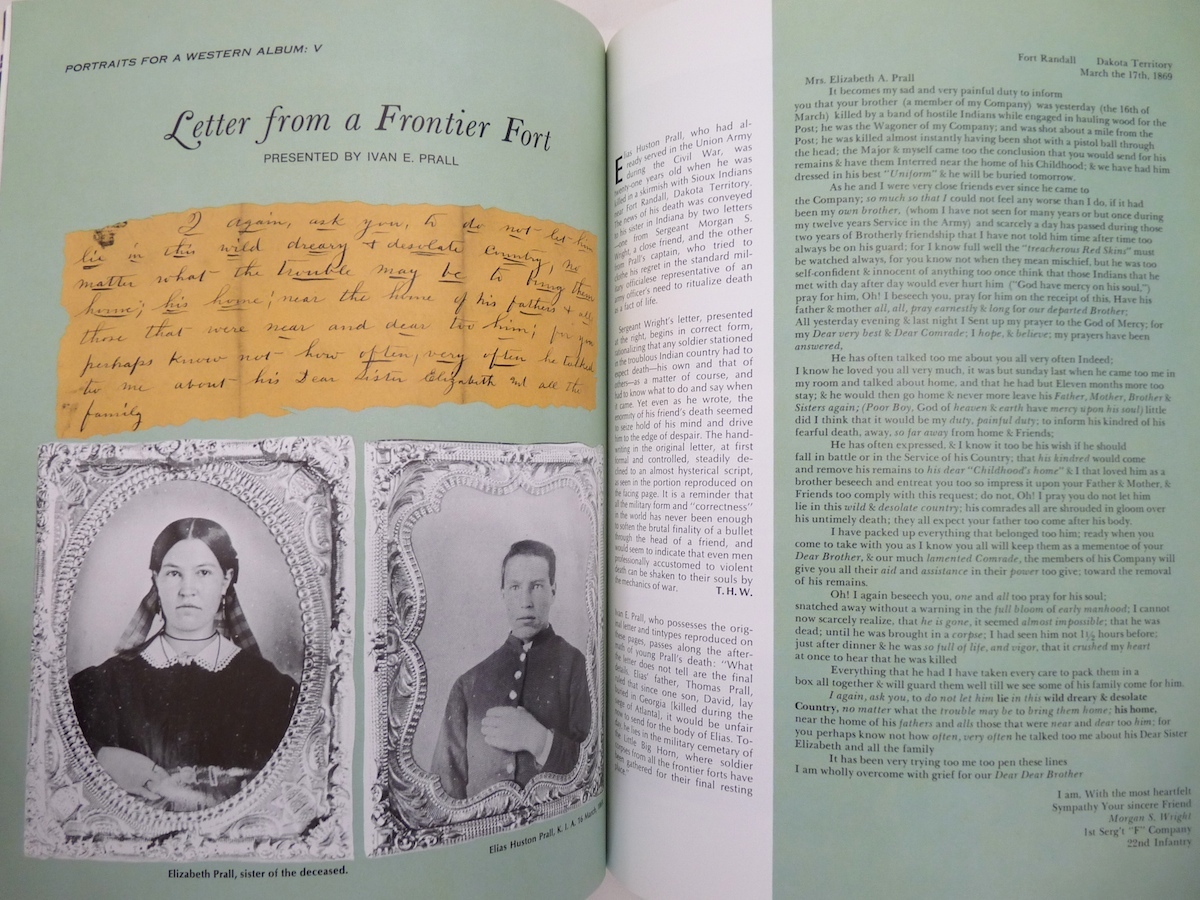 PORTRAITS FOR A WESTERN ALBUM: V
Letter from a Frontier Fort
PRESENTED BY IVAN E. PRALL
I again, ask you, to do not let him
lie in this wild dreary & desolate Country, no
matter what the trouble may be to bring them
home; his home; near the home of his fathers & all
those that were near and dear too him; for you
perhaps know not how often, very often he talked
to me about his Dear Sister Elizabeth and all the
family
Elizabeth Prall, sister of the deceased.
Elias Huston Prall, K. I. A. 16 March,
Elias Huston Prall, who had al-
ready served in the Union Army
during the Civil War, was
twenty-one years old when he was
killed in a skirmish with Sioux Indians
near Fort Randall, Dakota Territory.
The news of his death was conveyed
to his sister in Indiana by two letters
—one from Sergeant Morgan S.
Wright, a close friend, and the other
from Prall's captain, who tried to
clothe his regret in the standard mil-
itary officialese representative of an
army officer's need to ritualize death
as a fact of life.
Sergeant Wright's letter, presented
at the right, begins in correct form,
rationalizing that any soldier stationed
in the troublous Indian country had to
expect death—his own and that of
others—as a matter of course, and
had to know what to do and say when
it came. Yet even as he wrote, the
enormity of his friend's death seemed
to seize hold of his mind and drive
him to the edge of despair. The hand-
writing in the original letter, at first
formal and controlled, steadily de-
clined to an almost hysterical script,
as seen in the portion reproduced on
the facing page. It is a reminder that
all the military form and "correctness"
in the world has never been enough
to soften the brutal finality of a bullet
through the head of a friend, and
would seem to indicate that even men
professionally accustomed to violent
death can be shaken to their souls by
the mechanics of war. T. H. W.
Ivan E. Prall, who possesses the orig-
inal letter and tintypes reproduced on
these pages, passes along the after-
math of young Prall's death: "What
the letter does not tell are the final
details. Elias' father, Thomas Prall,
ruled that since one son, David, lay
buried in Georgia [killed during the
Siege of Atlanta], it would be unfair
to send for the body of Elias. To-
day he lies in the military cemetary of
the Little Big Horn, where soldier
corpses from all the frontier forts have
been gathered for their final resting
place."
Fort Randall Dakota Territory
March the 17th, 1869
Mrs. Elizabeth A. Prall
It becomes my sad and very painful duty to inform
you that your brother (a member of my Company) was yesterday (the 16th of
March) killed by a band of hostile Indians while engaged in hauling wood for the
Post; he was the Wagoner of my Company; and was shot about a mile from the
Post; he was killed almost instantly having been shot with a pistol ball through
the head; the Major & myself came too the conclusion that you would send for his
remains & have them Interred near the home of his Childhood; & we have had him
dressed in his best "Uniform" & he will be buried tomorrow.
As he and I were very close friends ever since he came to
the Company; so much so that I could not feel any worse than I do, if it had
been my own brother, (whom I have not seen for many years or but once during
my twelve years Service in the Army) and scarcely a day has passed during those
two years of Brotherly friendship that I have not told him time after time too
always be on his guard; for I know full well the "treacherous Red Skins" must
be watched always, for you know not when they mean mischief, but he was too
self-confident & innocent of anything too once think that those Indians that he
met with day after day would ever hurt him ("God have mercy on his soul,")
pray for him, Oh! I beseech you, pray for him on the receipt of this. Have his
father & mother all, all, pray earnestly & long for our departed Brother;
All yesterday evening & last night I Sent up my prayer to the God of Mercy; for
my Dear very best & Dear Comrade; I hope, & believe; my prayers have been
answered,
He has often talked too me about you all very often Indeed;
I know he loved you all very much, it was but sunday last when he came too me in
my room and talked about home, and that he had but Eleven months more too
stay; & he would then go home & never more leave his Father, Mother, Brother &
Sisters again; (Poor Boy, God of heaven & earth have mercy upon his soul) little
did I think that it would be my duty, painful duty; to inform his kindred of his
fearful death, away, so far away from home & Friends;
He has often expressed, & I know it too be his wish if he should
fall in battle or in the Service of his Country; that his kindred would come
and remove his remains to his dear "Childhood's home" & I that loved him as a
brother beseech and entreat you too so impress it upon your Father & Mother, &
Friends too comply with this request; do not, Oh! I pray you do not let him
lie in this wild & desolate country; his comrades all are shrouded in gloom over
his untimely death; they all expect your father too come after his body.
I have packed up everything that belonged too him; ready when you
come to take with you as I know you all will keep them as a mementoe of your
Dear Brother, & our much lamented Comrade, the members of his Company will
give you all their aid and assistance in their power too give; toward the removal
of his remains.
Oh! I again beseech you, one and all too pray for his soul;
snatched away without a warning in the full bloom of early manhood; I cannot
now scarcely realize, that he is gone, it seemed almost impossible; that he was
dead; until he was brought in a corpse; I had seen him not 1½ hours before;
just after dinner & he was so full of life, and vigor, that it crushed my heart
at once to hear that he was killed
Everything that he had I have taken every care to pack them in a
box all together & will guard them well till we see some of his family come for him.
I again, ask you, to do not let him lie in this wild dreary & desolate
Country, no matter what the trouble may be to bring them home; his home,
near the home of his fathers and alls those that were near and dear too him; for
you perhaps know not how often, very often he talked too me about his Dear Sister
Elizabeth and all the family
It has been very trying too me too pen these lines
I am wholly overcome with grief for our Dear Dear Brother
I am, With the most heartfelt
Sympathy Your sincere Friend
Morgan S. Wright
1st Serg't "F" Company
22nd Infantry